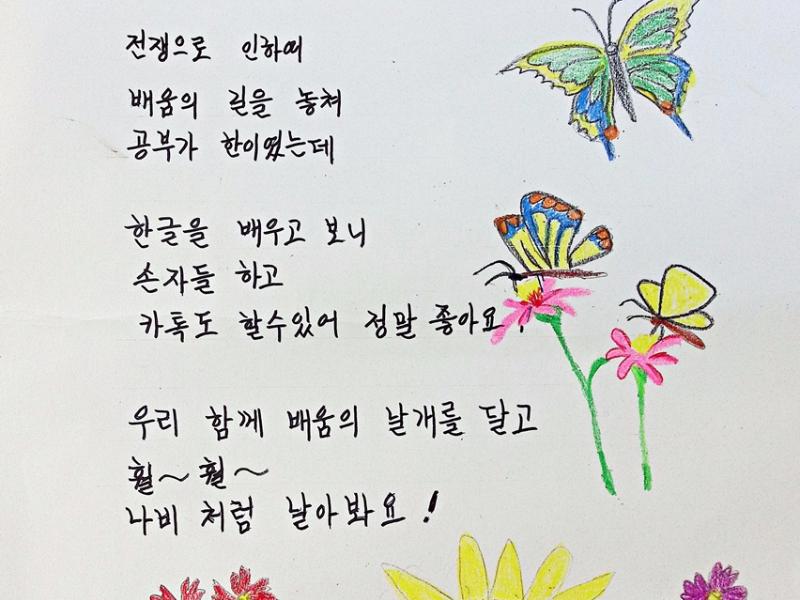 전쟁으로 인하여
배움의 길을 놓쳐
공부가 한이였는데
한글을 배우고 보니
손자들 하고
카톡도 할수있어 정말 좋아요.
우리 함께 배움의 날개를 달고
훨~훨~
나비 처럼 날아봐요!